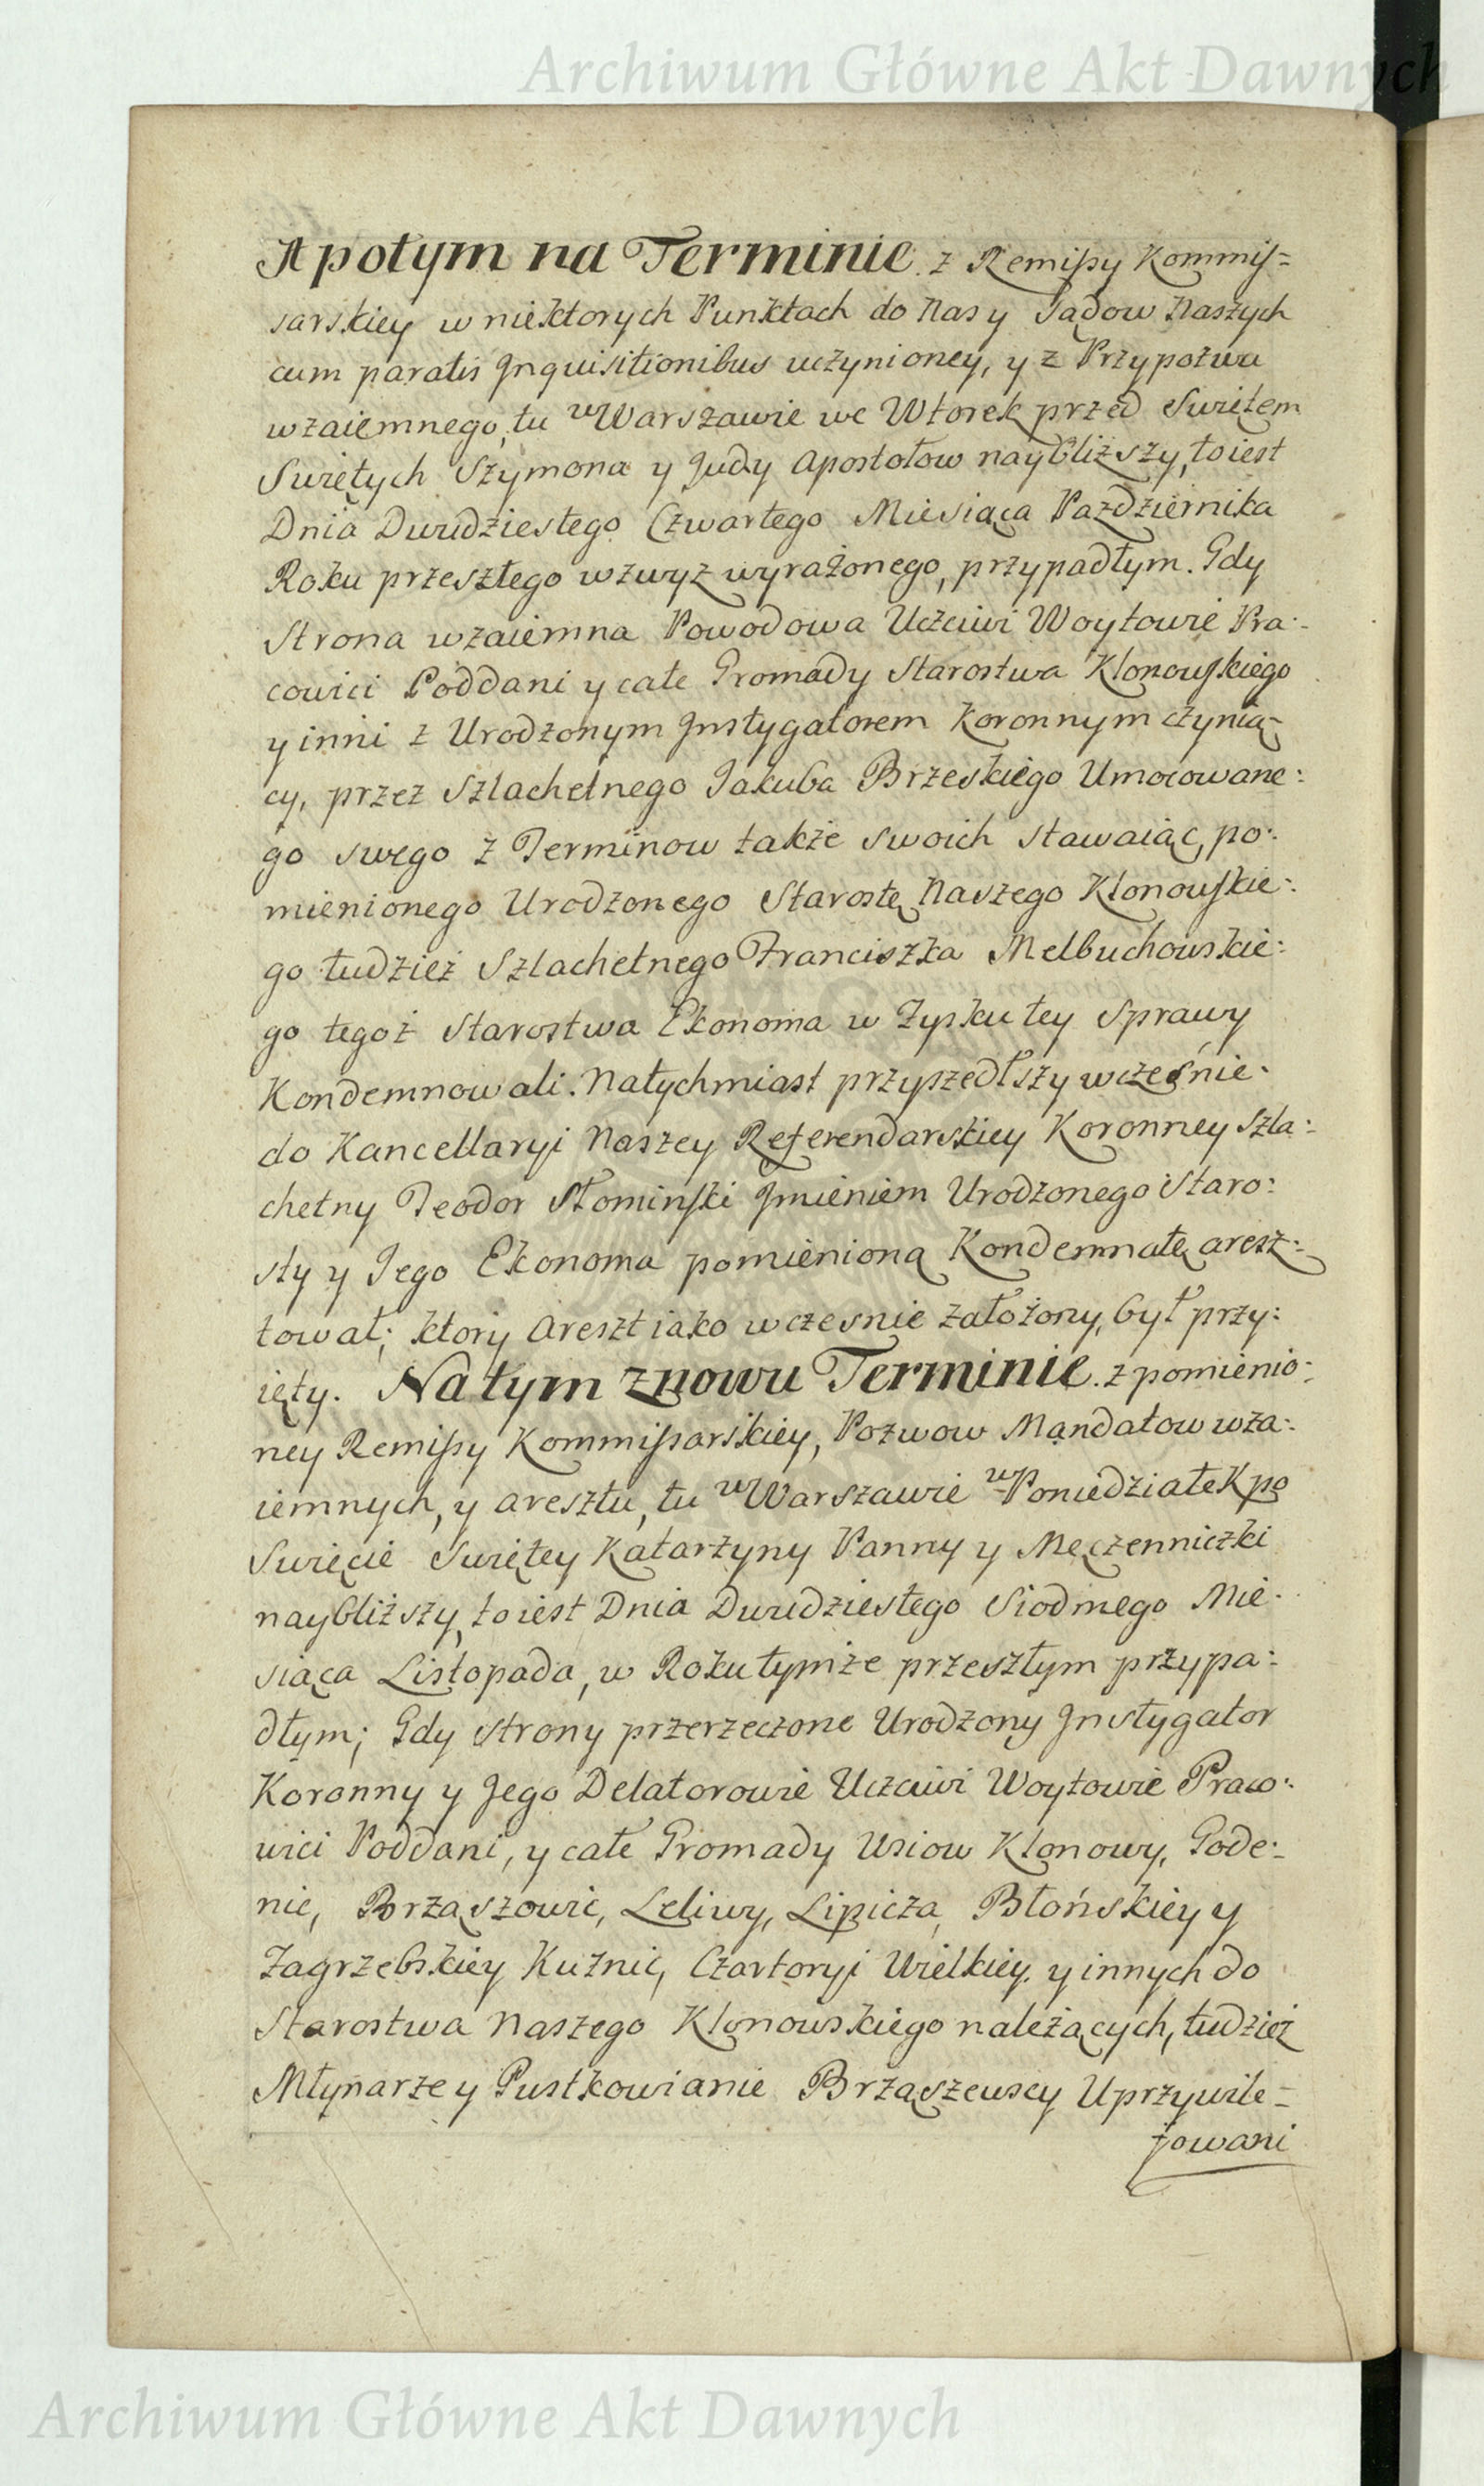 Archiwum Główne Akt Dawnych
A potym na Terminie z Remissy Kommis=
sarskiey w niektorych Punktach do Nas y Sądow Naszych
cum paratis Inquisitionibus uczynioney, y z Przypozwu
wzaiemnego, tu w Warszawie we Wtorek przed Swiętem
Swiętych Szymona y Judy Apostołow naybliższy, to iest
Dnia Dwudziestego Czwartego Miesiąca Pazdziernika
Roku przeszłego wzwyz wyrażonego, przypadłym. Gdy
Strona wzaiemna Powodowa Uczciwi Woytowie Pra:
cowici Poddani y całe Gromady Starostwa Klonowskiego
y inni z Urodzonym Instygatorem Koronnym czynią=
cy, przez Szlachetnego Jakuba Brzeskiego Umocowane:
go swego z Terminow także swoich stawaiąc, po:
mienionego Urodzonego Starostę Naszego Klonowskie:
go tudzież Szlachetnego Franciszka Melbuchowskie:
go tegoż Starostwa Ekonoma w Zysku tey Sprawy
Kondemnowali. Natychmiast przyszedłszy wcześnie
do Kancellaryi Naszey Referendarskiey Koronney Szla:
chetny Teodor Słominski Imieniem Urodzonego Staro:
sty y Jego Ekonoma pomienioną Kondemnatę aresz:
tował; ktory Areszt iako wczesnie założony, był przy:
ięty. Na tym znowu Terminie z pomienio:
ney Remissy Kommissarskiey, Pozwow Mandatow wza:
iemnych, y aresztu, tu w Warszawie w Poniedziałek po
Swięcie Swiętey Katarzyny Panny y Męczenniczki
naybliższy, to iest Dnia Dwudziestego Siodmego Mie:
siąca Listopada, w Roku tymże przeszłym przypa:
dłym; Gdy strony przerzeczone Urodzony Instygator
Koronny y Jego Delatorowie Uczciwi Woytowie Praco:
wici Poddani, y całe Gromady Wsiow Klonowy, Gode:
nic, Brząszowic, Leliwy, Lipicza, Błońskiey y
Zagrzebskiey Kuźnic, Czartoryi Wielkiey y innych do
Starostwa Naszego Klonowskiego należących, tudzież
Młynarze y Pustkowianie Brząszewscy Uprzywile=
jowani
Archiwum Główne Akt Dawnych